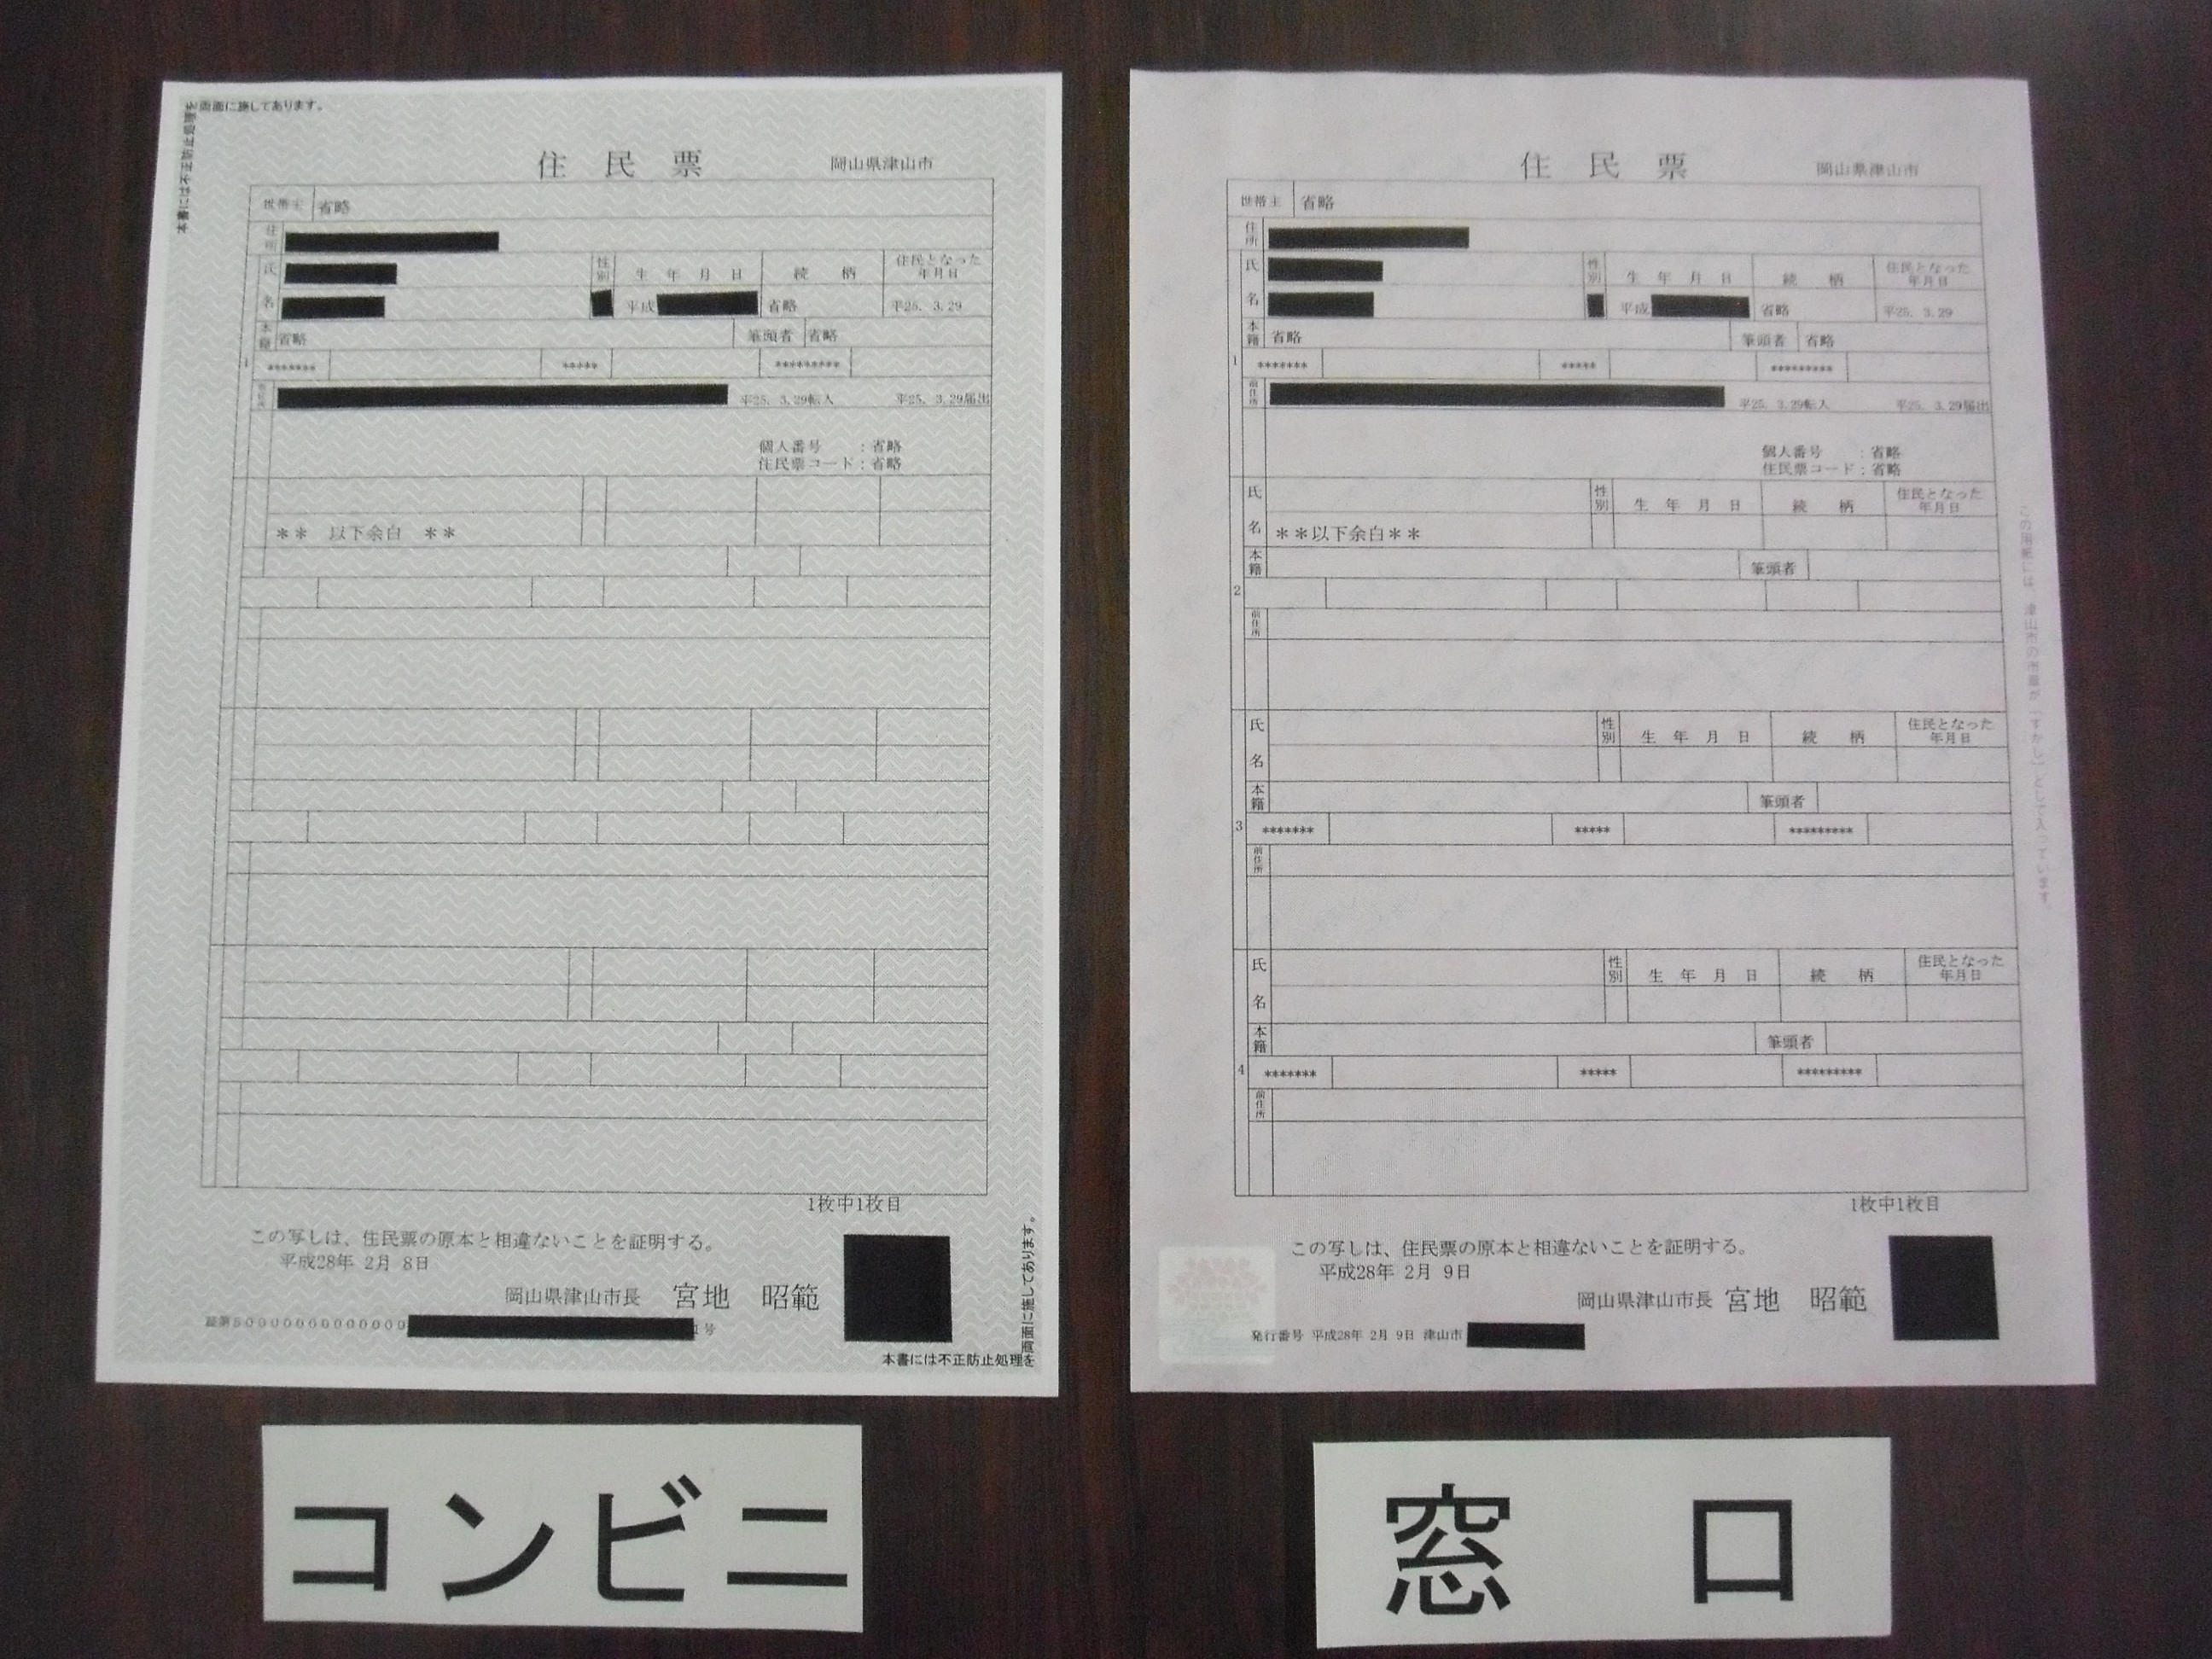 本書には不正防止処理を両面に施してあります。
住民票
岡山県津山市
世帯主 省略
住所
氏名
性別 生年月日 続柄 住民となった年月日
平成 省略 平25. 3.29
本籍 省略 筆頭者 省略
1 ******* ***** *********
前住所 平25. 3.29転入 平25. 3.29届出
個人番号 : 省略
住民票コード : 省略
** 以下余白 **
1枚中1枚目
この写しは、住民票の原本と相違ないことを証明する。
平成28年 2月 8日
岡山県津山市長 宮地 昭範
1号
本書には不正防止処理を両面に施してあります。
コンビニ
住民票
岡山県津山市
世帯主 省略
住所
氏名
性別 生年月日 続柄 住民となった年月日
平成 省略 平25. 3.29
本籍 省略 筆頭者 省略
1 ******* ***** *********
前住所 平25. 3.29転入 平25. 3.29届出
個人番号 : 省略
住民票コード : 省略
氏名 性別 生年月日 続柄 住民となった年月日
**以下余白**
本籍 筆頭者
2
前住所
氏名 性別 生年月日 続柄 住民となった年月日
本籍 筆頭者
3 ******* ***** *********
前住所
氏名 性別 生年月日 続柄 住民となった年月日
本籍 筆頭者
4 ******* ***** *********
前住所
1枚中1枚目
この写しは、住民票の原本と相違ないことを証明する。
平成28年 2月 9日
岡山県津山市長 宮地 昭範
発行番号 平成28年 2月 9日 津山市
この用紙には、津山市の市章が「すかし」として入っています。
窓口